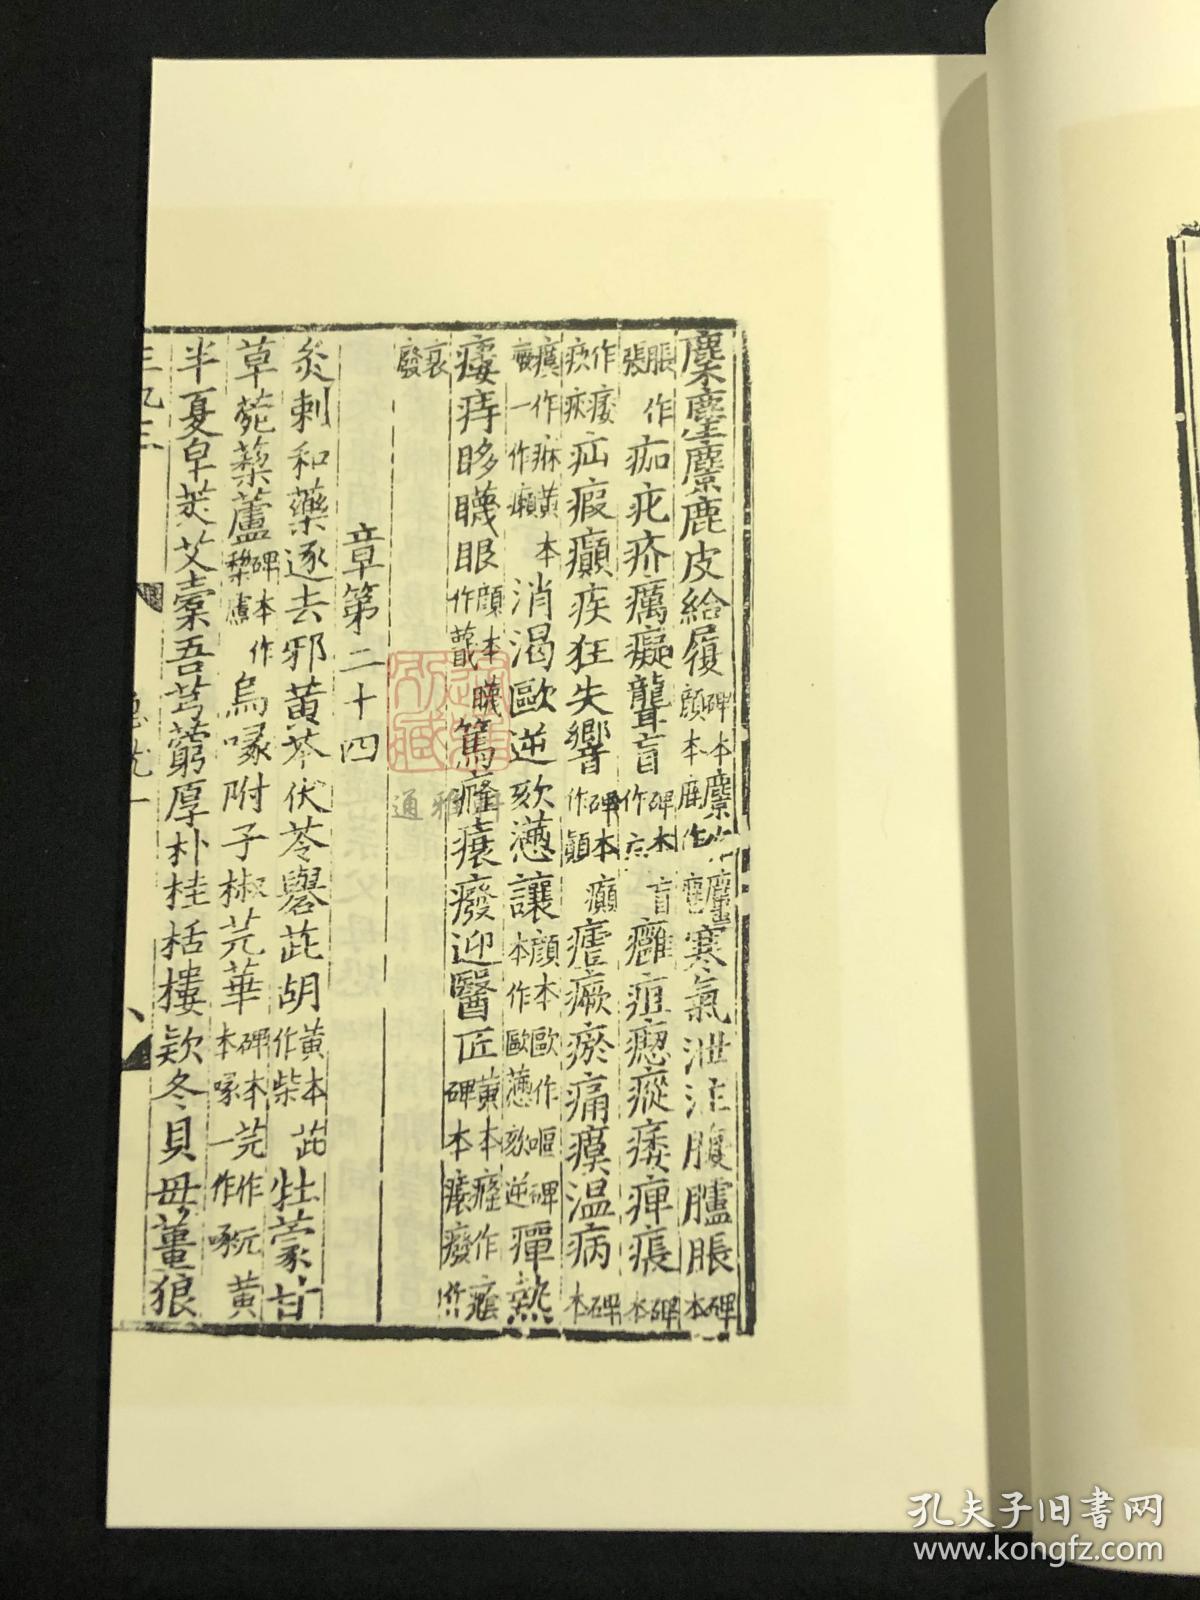 麋麈麖鹿皮給履碑本麖作麠顏本麻作麀寒氣泄注腹臚脹碑本
脹作張痂疕疥癘癡聾盲碑本盲作𥄊癰疽瘛瘲痿痺㾭碑本
作痿疢疾疝瘕癲疾狂失響碑本癲作顛瘧瘚瘀痛瘼温病碑本
瘼作痳黃本痳一作癩消渴歐逆欬懣讓顏本歐作嘔碑本作歐懣欬逆癉熱
瘻痔眵䁾眼顏本䁾作𥉻篤癃㿔癈迎醫匠黃本癃作㿗碑本㿔癈作
衰廢
章第二十四
灸刺和藥逐去邪黃芩伏苓礜茈胡黃本茈作柴牡蒙甘
草菀藜蘆碑本作犂慮烏喙附子椒芫華碑本芫作沅黃本喙一作啄
半夏皁莢艾橐吾芎藭厚朴桂栝樓款冬貝母薑狼
通雅
孔夫子旧書网
www.kongfz.com